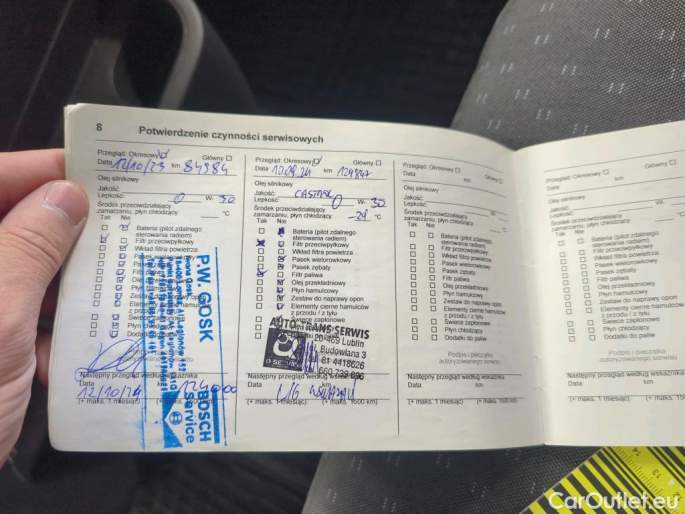 8
Potwierdzenie czynności serwisowych
Przegląd: Okresowy Główny
Data 12/10/23 km 84984
Olej silnikowy
Jakość:
Lepkość: 0 W- 30
Środek przeciwdziałający
zamarzaniu, płyn chłodzący °C
Tak Nie
Bateria (pilot zdalnego
sterowania radiem)
Filtr przeciwpyłkowy
Wkład filtra powietrza
Pasek
Pasek
Filtr
Olej
Płyn
Zestaw
Elementy
z przodu
Świece
Płyn
Dodatki
P.W. GOSK
BOSCH
Service
Następny przegląd według wskaźnika
Data km
12/10/24 124000
(+ maks. 1 miesiąc) (+ maks. 1500 km)
Przegląd: Okresowy Główny
Data 10.09.24 km
Olej silnikowy
Jakość: CASTROL
Lepkość: 0 W- 30
Środek przeciwdziałający
zamarzaniu, płyn chłodzący °C
Tak Nie
Bateria (pilot zdalnego
sterowania radiem)
Filtr przeciwpyłkowy
Wkład filtra powietrza
Pasek wielorowkowy
Pasek zębaty
Filtr paliwa
Olej przekładniowy
Płyn hamulcowy
Zestaw do naprawy opon
Elementy cierne hamulców
z przodu / z tyłu
Świece zapłonowe
AUTO TRANS SERWIS
20-469 Lublin
Budowlana 3
81 4418626
Następny przegląd według wskaźnika
Data km
(+ maks. 1 miesiąc) (+ maks. 1500 km)
Przegląd: Okresowy Główny
Data km
Olej silnikowy
Jakość:
Lepkość: W-
Środek przeciwdziałający
zamarzaniu, płyn chłodzący °C
Tak Nie
Bateria (pilot zdalnego
sterowania radiem)
Filtr przeciwpyłkowy
Wkład filtra powietrza
Pasek wielorowkowy
Pasek zębaty
Filtr paliwa
Olej przekładniowy
Płyn hamulcowy
Zestaw do naprawy opon
Elementy cierne hamulców
z przodu / z tyłu
Świece zapłonowe
Płyn chłodzący
Dodatki do paliw
Podpis i pieczątka
autoryzowanego serwisu
Następny przegląd według wskaźnika
Data km
(+ maks. 1 miesiąc) (+ maks. 1500 km)
Przegląd: Okresowy Główny
Data km
Olej silnikowy
Jakość:
Lepkość: W-
Środek przeciwdziałający
zamarzaniu, płyn chłodzący °C
Tak Nie
Bateria (pilot zdalnego
sterowania radiem)
Filtr przeciwpyłkowy
Wkład filtra powietrza
Pasek wielorowkowy
Pasek zębaty
Filtr paliwa
Olej przekładniowy
Płyn hamulcowy
Zestaw do naprawy opon
Elementy cierne hamulców
z przodu / z tyłu
Świece zapłonowe
Płyn chłodzący
Dodatki do paliw
Podpis i pieczątka
autoryzowanego serwisu
Następny przegląd według wskaźnika
Data km
(+ maks. 1 miesiąc) (+ maks.
14
13
CarOutlet.eu